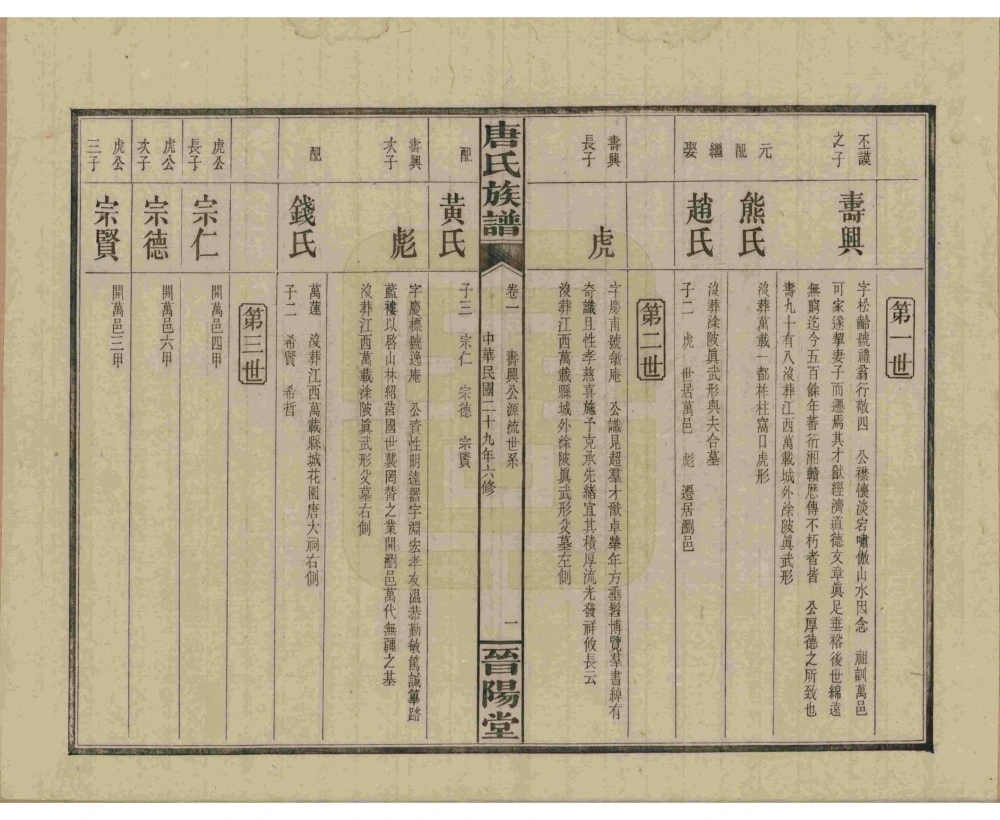 第一世
丕謨之子
壽興
字松齡號禮翁行敬四 公襟懷淡宕嘯傲山水因念 祖訓萬邑
可家遂挈妻子而遷焉其才猷經濟道德文章眞足垂裕後世綿遠
無窮迄今五百餘年蕃衍湘贛歷傳不朽者皆 公厚德之所致也
壽九十有八沒葬江西萬載城外涂陂眞武形
元配
熊氏
沒葬萬載一都柞柱窩口虎形
繼娶
趙氏
沒葬涂陂眞武形與夫合墓
子二 虎 世居萬邑 彪 遷居瀏邑
第二世
壽興長子
虎
字慶南號敏庵 公識見超羣才猷卓犖年方垂髫博覽羣書綽有
奇識且性孝慈喜施予克承先緒宜其積厚流光發祥攸長云
沒葬江西萬載縣城外涂陂眞武形父墓左側
唐氏族譜
卷一 壽興公源流世系
中華民國二十九年六修
一
晉陽堂
配
黃氏
子三 宗仁 宗德 宗賢
壽興次子
彪
字慶標號逸庵 公資性明達器宇淵宏孝友溫恭勤敏篤誠篳路
藍褸以啓山林紹莒國世襲罔替之業開瀏邑萬代無疆之基
沒葬江西萬載涂陂眞武形父墓右側
配
錢氏
萬蓮 沒葬江西萬載縣城花園唐大祠右側
子二 希賢 希哲
第三世
虎公長子
宗仁
開萬邑四甲
虎公次子
宗德
開萬邑六甲
虎公三子
宗賢
開萬邑三甲